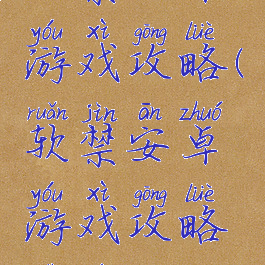 yóu xì gōng lüè
游戏攻略(
ruǎn jìn ān zhuó
软禁安卓
yóu xì gōng lüè
游戏攻略